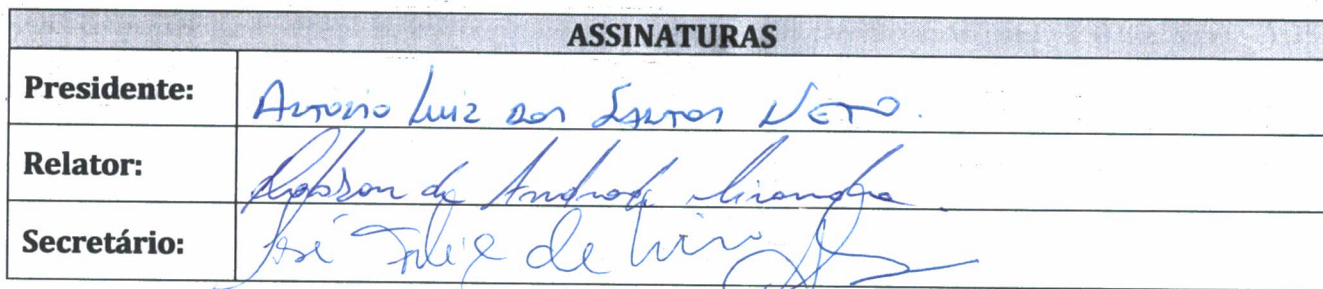 ASSINATURAS
Presidente: Antonio Luiz dos Santos Neto.
Relator: Robson de Andrade Miranda.
Secretário: José Felix de